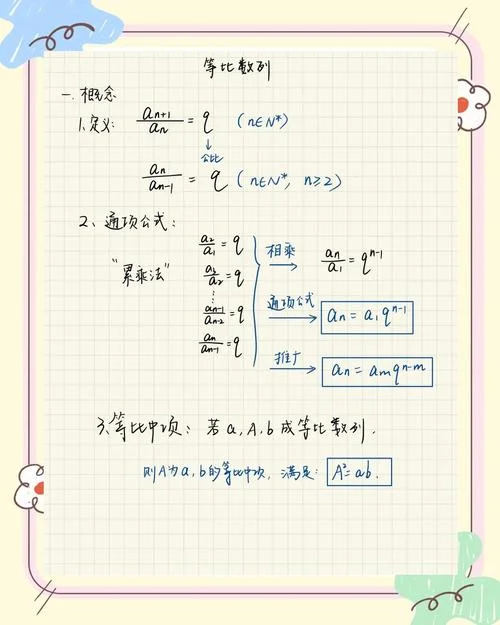 等比数列
一. 概念
1. 定义: aₙ₊₁/aₙ = q (n∈N*)
↓
公比
aₙ/aₙ₋₁ = q (n∈N*, n≥2)
2、通项公式:
"累乘法"
a₂/a₁ = q
a₃/a₂ = q
⋮
aₙ₋₁/aₙ₋₂ = q
aₙ/aₙ₋₁ = q
相乘 → aₙ/a₁ = qⁿ⁻¹
通项公式 → aₙ = a₁qⁿ⁻¹
推广 → aₙ = aₘqⁿ⁻ᵐ
3、等比中项: 若a, A, b成等比数列.
则A为a, b的等比中项, 满足: A²=ab.